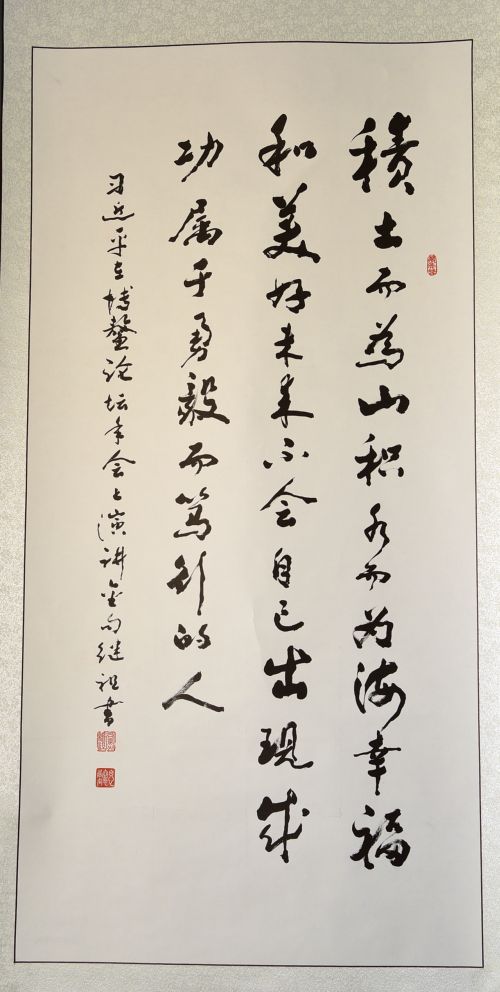 積土而為山积水而为海幸福
和美好未来不会自己出现成
功属于勇毅而笃行的人
习近平在博鳌论坛年会上演讲金句继祖书